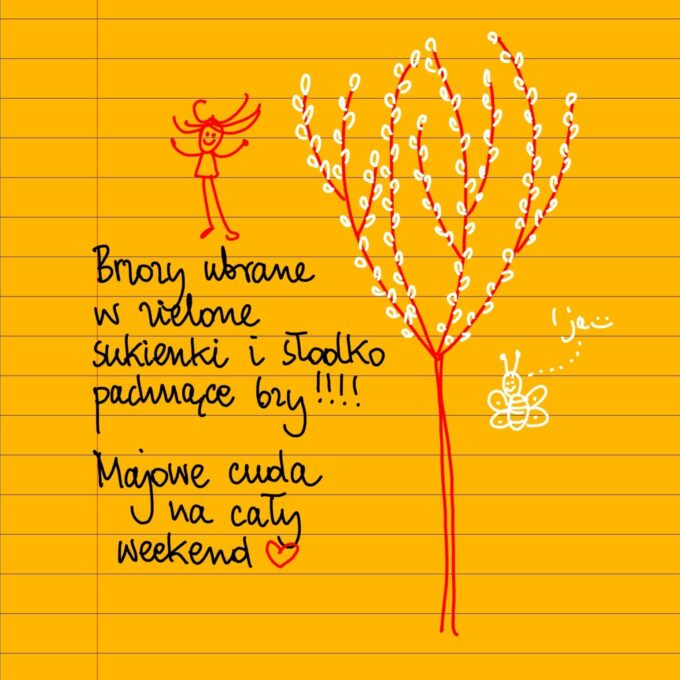 Brzozy ubrane
w zielone
sukienki i słodko
pachnące bzy!!!!
Majowe cuda
na cały
weekend
I ja